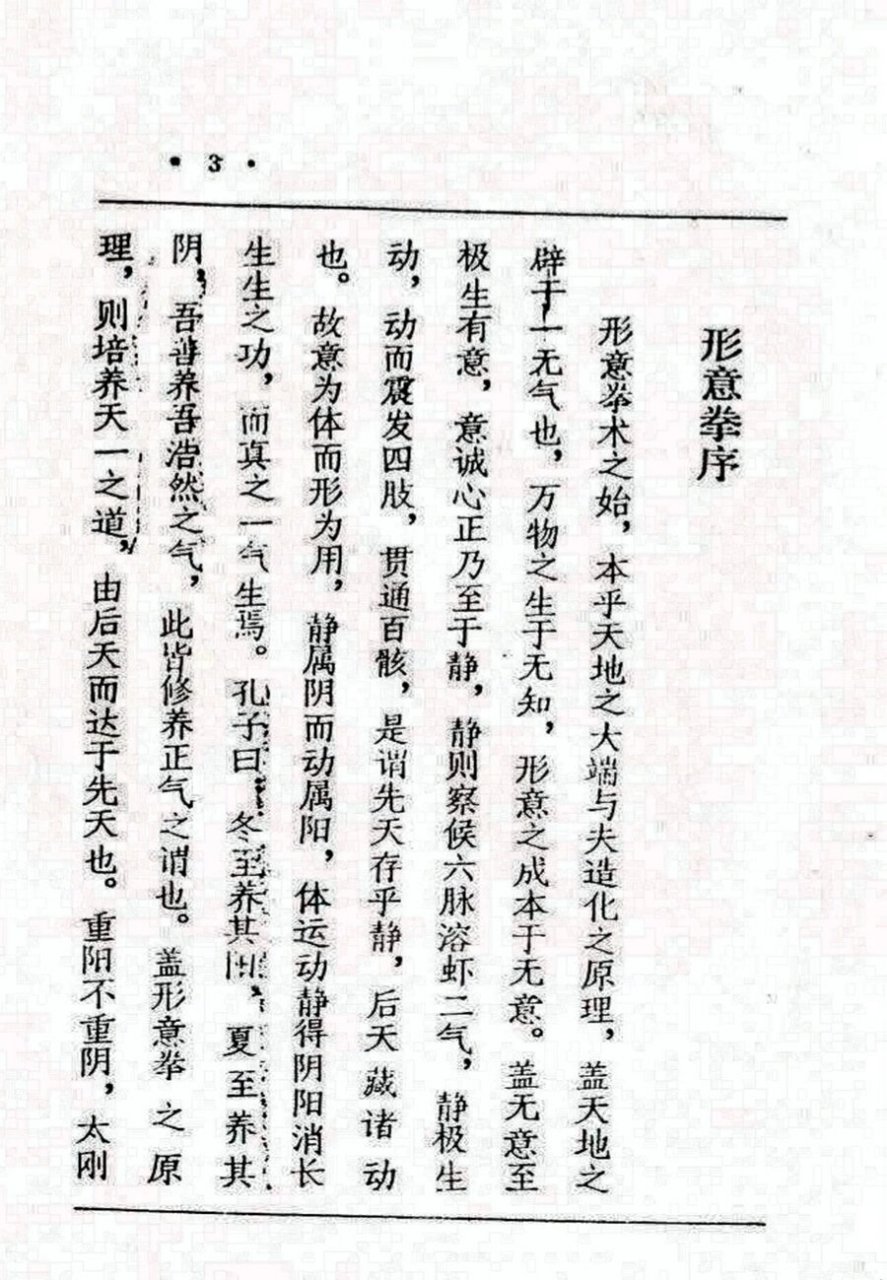 · 3 ·
形意拳序
形意拳术之始，本乎天地之大端与夫造化之原理，盖天地之
辟于一无气也，万物之生于无知，形意之成本于无意。盖无意至
极生有意，意诚心正乃至于静，静则察候六脉溶虾二气，静极生
动，动而震发四肢，贯通百骸，是谓先天存乎静，后天藏诸动
也。故意为体而形为用，静属阴而动属阳，体运动静得阴阳消长
生生之功，而真之一气生焉。孔子曰，冬至养其阳，夏至养其
阴，吾善养吾浩然之气，此皆修养正气之谓也。盖形意拳之原
理，则培养天一之道，由后天而达于先天也。重阳不重阴，太刚